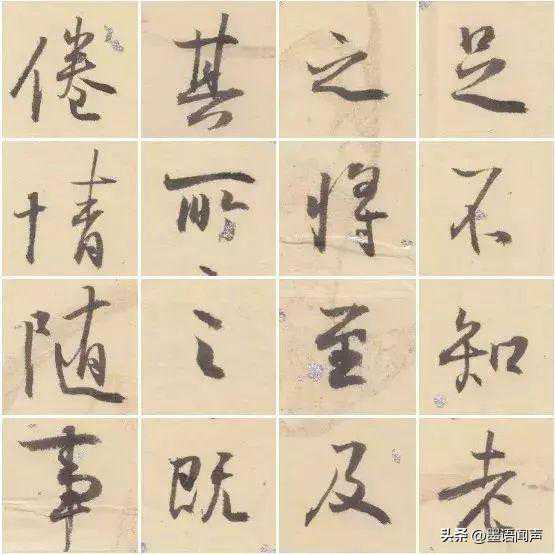 足不知老
之将至及
其所之既
倦情随事
头条 @墨语闻声